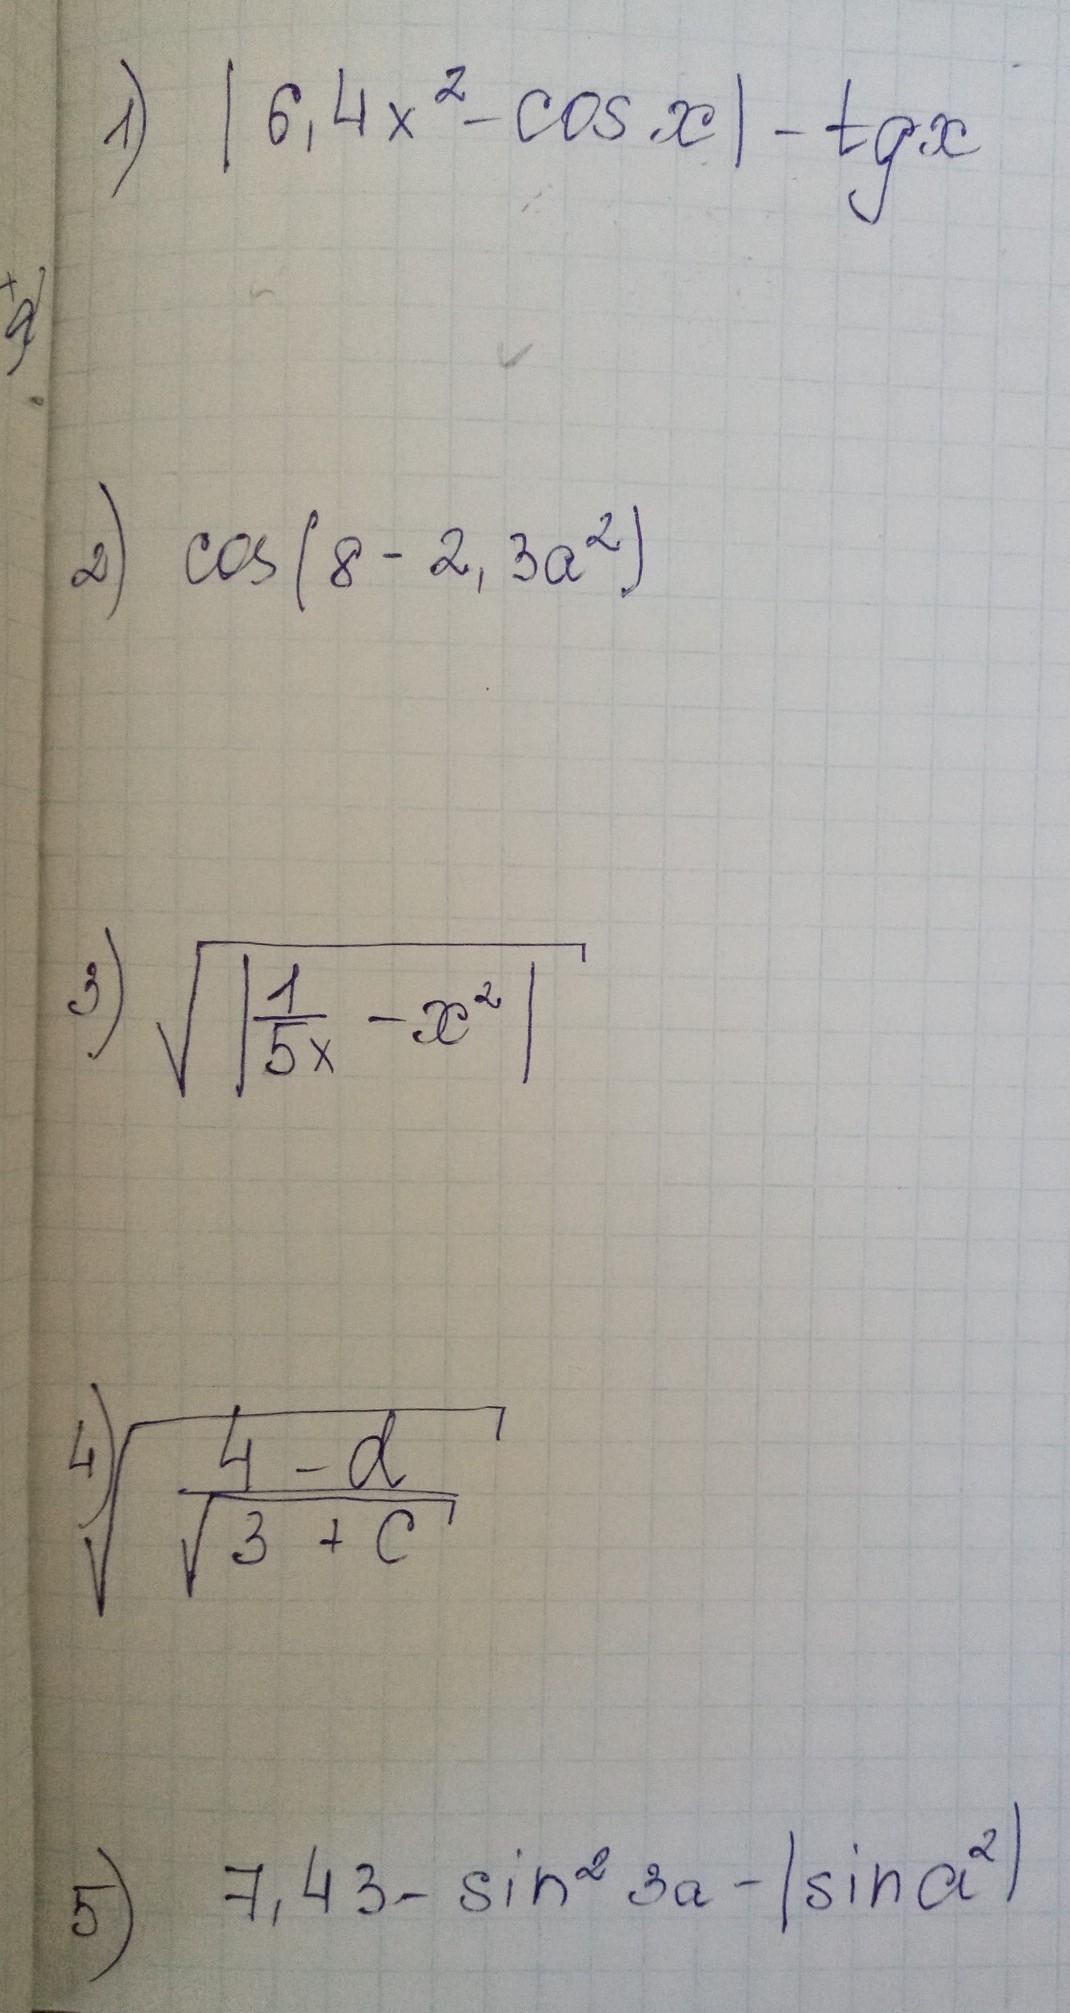 1) |6,4x² - cos x| - tgx
2) cos(8 - 2,3a²)
3) √|1/5x - x²|
4) √((4 - d)/√(3 + c))
5) 7,43 - sin² 3a - |sin a²|